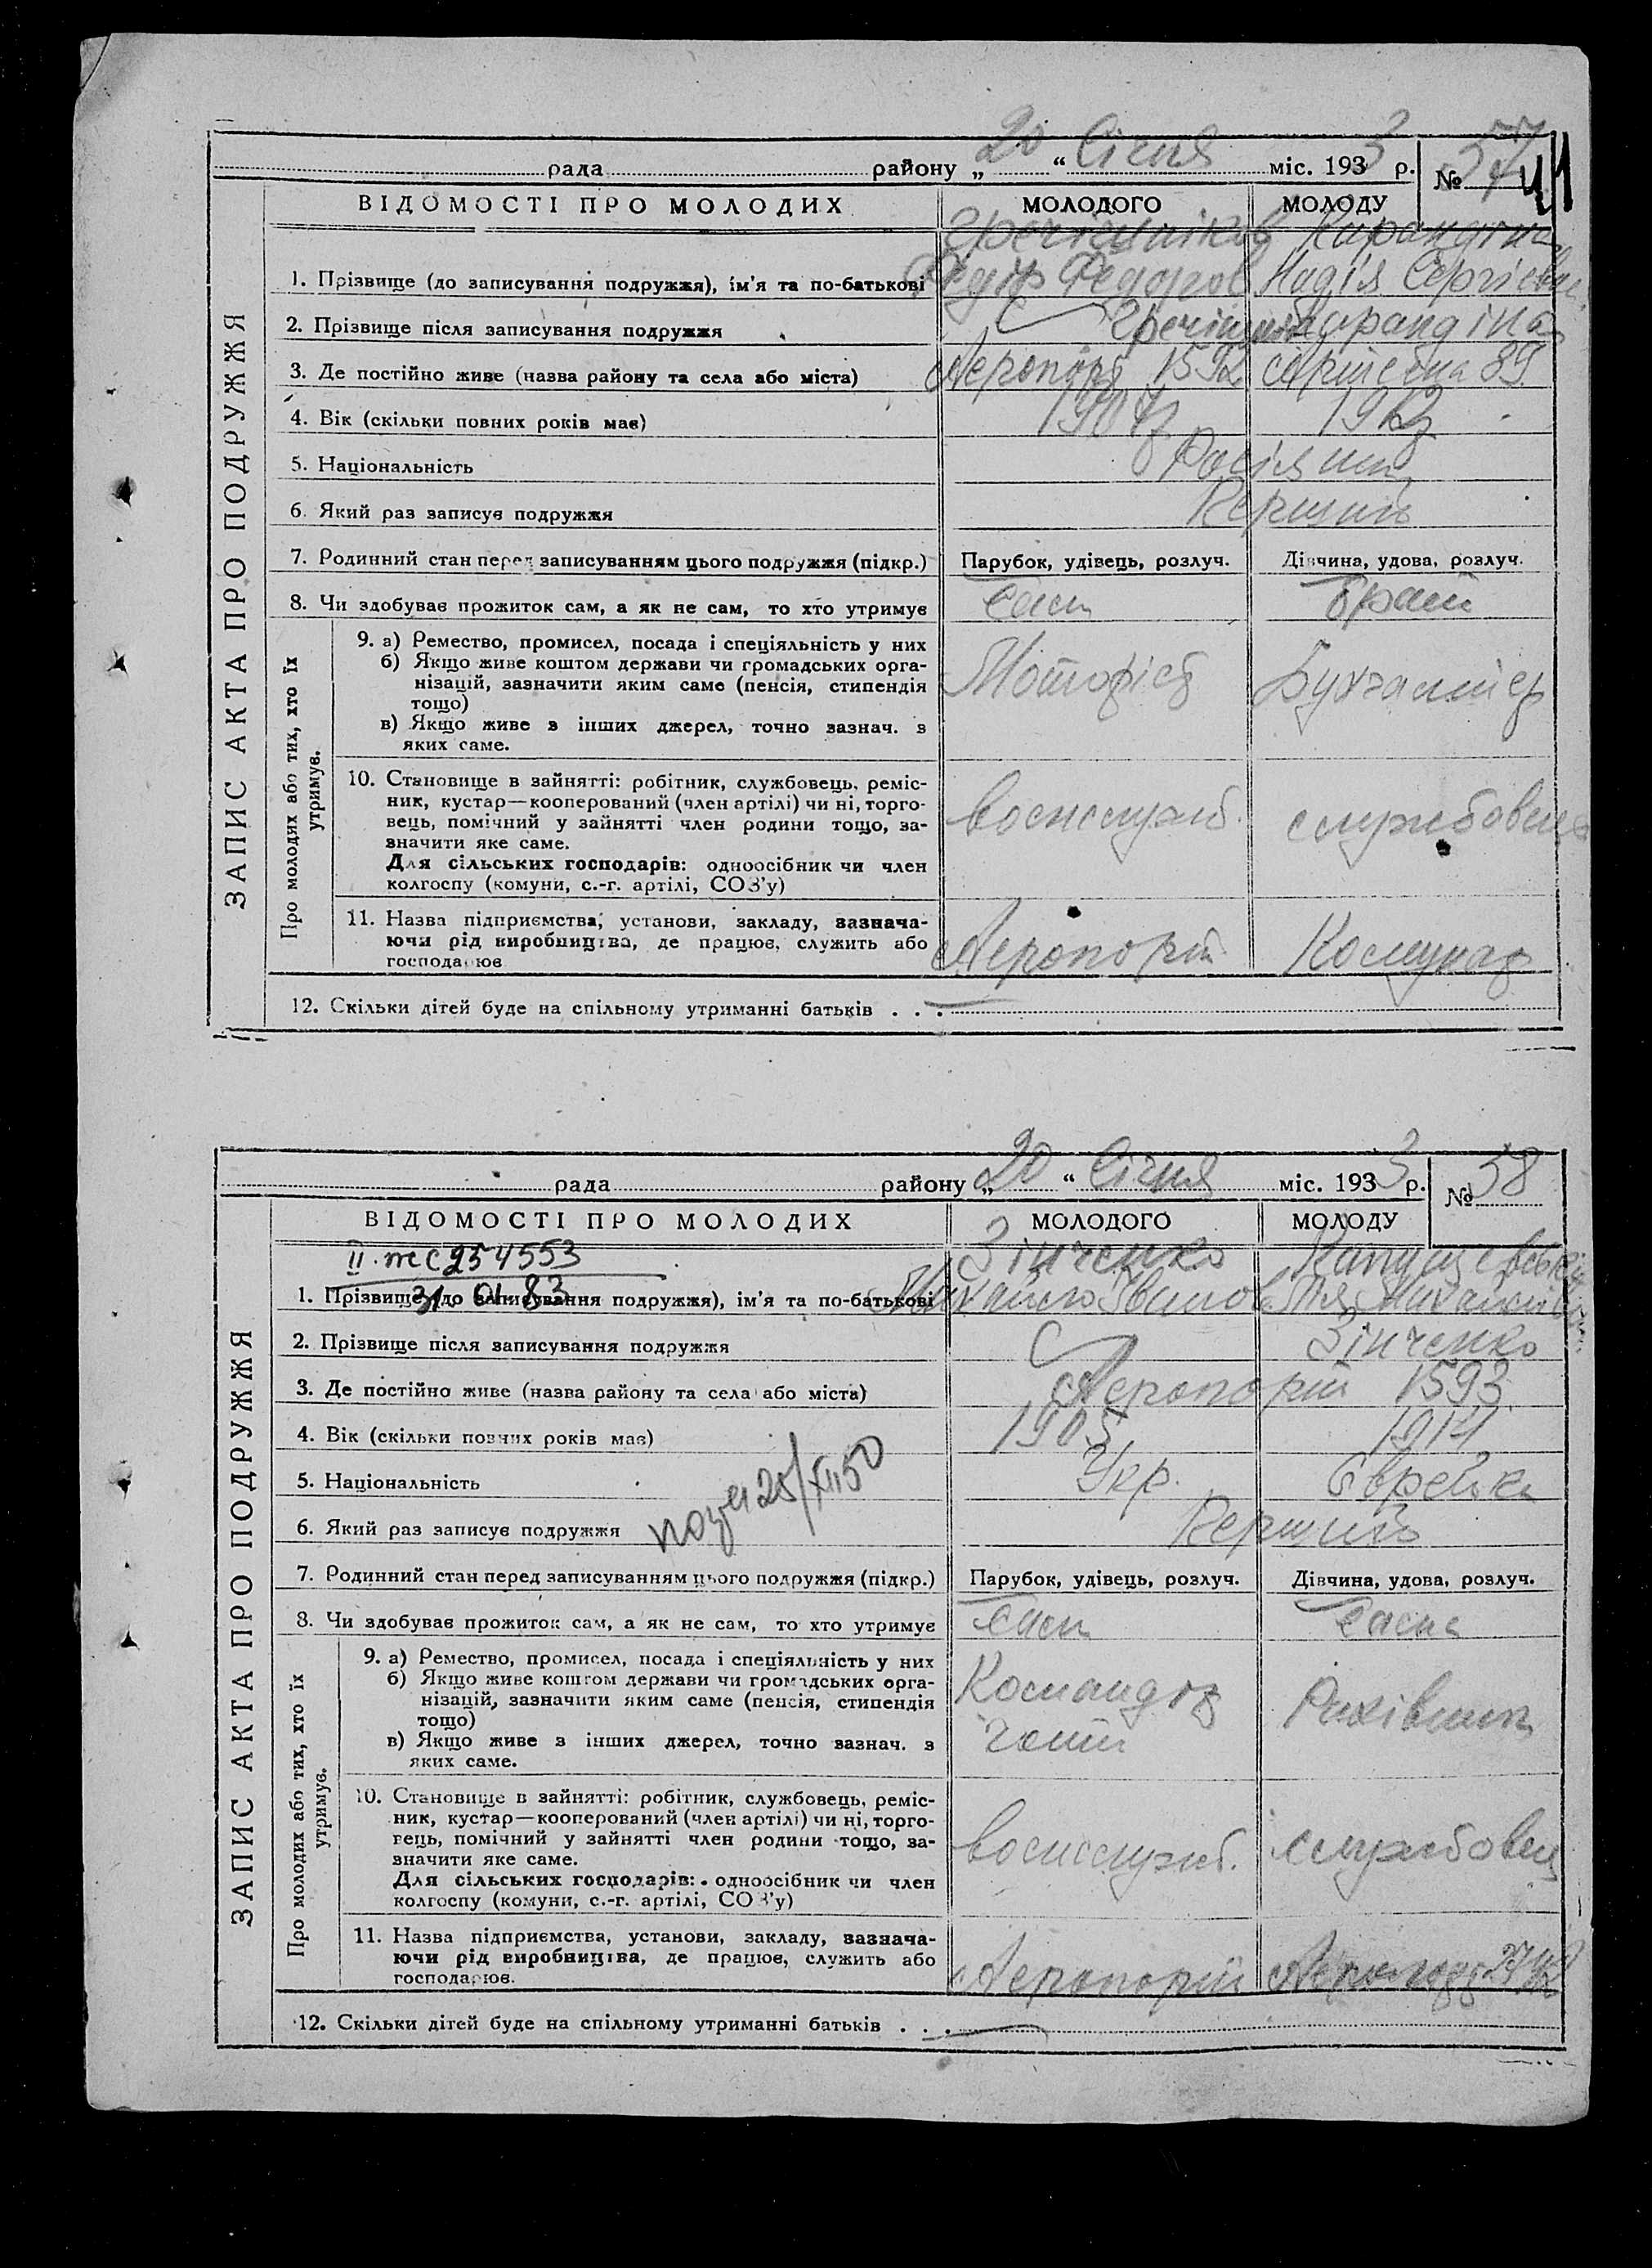 рада району „ 20 “ Січня міс. 1933 р. № 57
41
ВІДОМОСТІ ПРО МОЛОДИХ МОЛОДОГО МОЛОДУ
ЗАПИС АКТА ПРО ПОДРУЖЖЯ
1. Прізвище (до записування подружжя), ім'я та по-батькові
Карандіна
Федір Федоров Надія Сергіївна
2. Прізвище після записування подружжя Карандіна
3. Де постійно живе (назва району та села або міста) Аеропорт 1592 89
4. Вік (скільки повних років має) 1907
5. Національність Росіяни
6. Який раз записує подружжя Перший
7. Родинний стан перед записуванням цього подружжя (підкр.) Парубок, удівець, розлуч. Дівчина, удова, розлуч.
8. Чи здобуває прожиток сам, а як не сам, то хто утримує Сам брат
Про молодих або тих, хто їх утримує.
9. а) Ремество, промисел, посада і спеціяльність у них
б) Якщо живе коштом держави чи громадських орга-
нізацій, зазначити яким саме (пенсія, стипендія
тощо)
в) Якщо живе з інших джерел, точно зазнач. з
яких саме.
Моторіст Бухгалтер
10. Становище в зайнятті: робітник, службовець, реміс-
ник, кустар—кооперований (член артілі) чи ні, торго-
вець, помічний у зайнятті член родини тощо, за-
значити яке саме.
Для сільських господарів: одноосібник чи член
колгоспу (комуни, с.-г. артілі, СОЗ'у)
воєнслужб. службовець
11. Назва підприємства, установи, закладу, зазнача-
ючи рід виробництва, де працює, служить або
господарює
Аеропорт Комунар
12. Скільки дітей буде на спільному утриманні батьків . . .
рада району „ 20 “ Січня міс. 1933 р. № 58
ВІДОМОСТІ ПРО МОЛОДИХ МОЛОДОГО МОЛОДУ
ЗАПИС АКТА ПРО ПОДРУЖЖЯ
II. ЖС 254553
31 01. 83
1. Прізвище (до записування подружжя), ім'я та по-батькові
Зінченко
Михайло Іванов
2. Прізвище після записування подружжя Зінченко
3. Де постійно живе (назва району та села або міста) Аеропорт 1593
4. Вік (скільки повних років має) 1905 1914
5. Національність Укр. Єврейка
6. Який раз записує подружжя Перший
25/XII 50
7. Родинний стан перед записуванням цього подружжя (підкр.) Парубок, удівець, розлуч. Дівчина, удова, розлуч.
8. Чи здобуває прожиток сам, а як не сам, то хто утримує Сам Сама
Про молодих або тих, хто їх утримує.
9. а) Ремество, промисел, посада і спеціяльність у них
б) Якщо живе коштом держави чи громадських орга-
нізацій, зазначити яким саме (пенсія, стипендія
тощо)
в) Якщо живе з інших джерел, точно зазнач. з
яких саме.
Командир Рахівник
чоти
10. Становище в зайнятті: робітник, службовець, реміс-
ник, кустар—кооперований (член артілі) чи ні, торго-
вець, помічний у зайнятті член родини тощо, за-
значити яке саме.
Для сільських господарів: одноосібник чи член
колгоспу (комуни, с.-г. артілі, СОЗ'у)
воєнслужб. службовець
11. Назва підприємства, установи, закладу, зазнача-
ючи рід виробництва, де працює, служить або
господарює.
Аеропорт
12. Скільки дітей буде на спільному утриманні батьків . . .